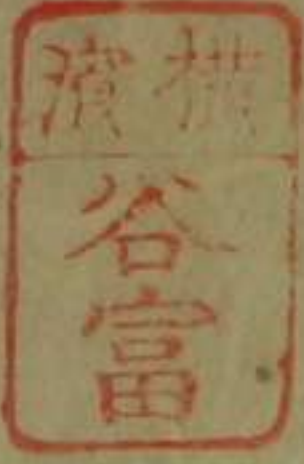 横濱
谷富